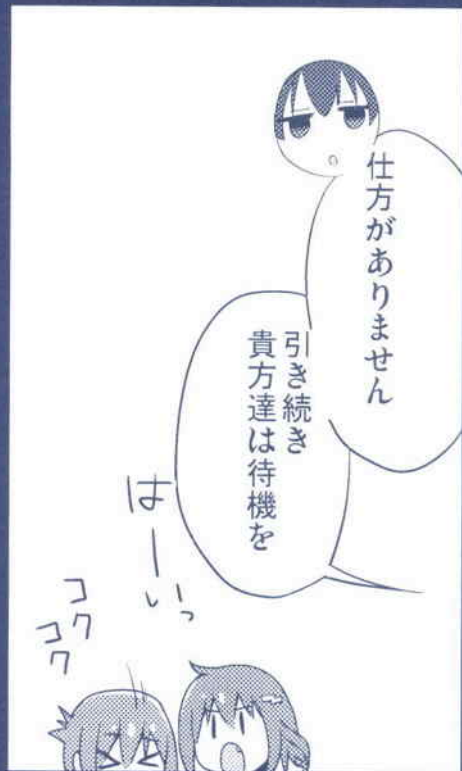 仕方がありません
引き続き
貴方達は待機を
はーいっ
コク
コク